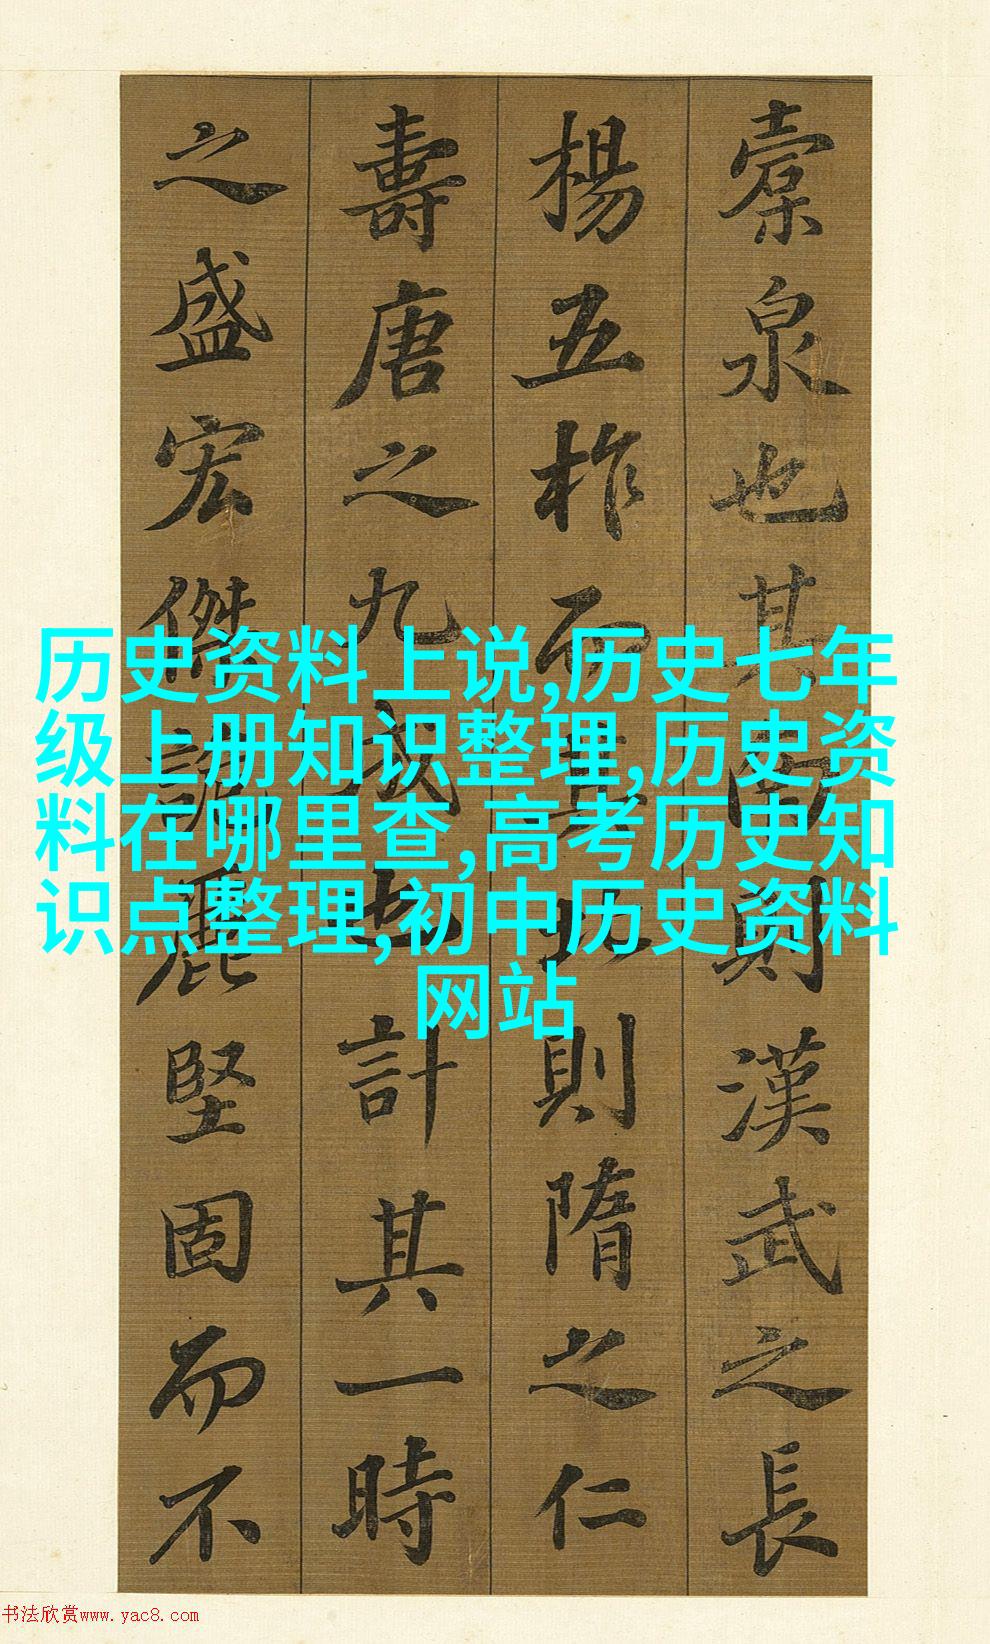 槖泉也其南則漢武之長
楊五柞而其北則隋之仁
壽唐之九成也計其一時
之盛宏傑詭麗堅固而不
历史资料上说,历史七年
级上册知识整理,历史资
料在哪里查,高考历史知
识点整理,初中历史资料
网站
书法欣赏www.yac8.com